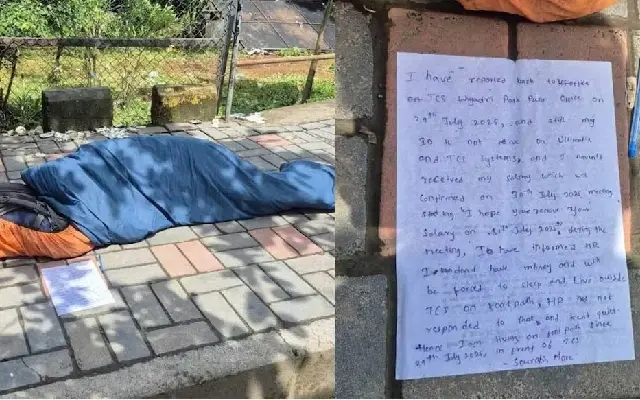 I have reported back to
on TCS Sahyadri Park Pune Office on
29th July 2025, and still my
ID is not active on Ultimatix
and TCS Systems, and I haven't
received my salary which was
confirmed on 30th July 2025 meeting
saying "I hope you receive your
salary on 31st July 2025, during the
meeting, I have informed HR
I don't have money and will
be forced to sleep and live outside
TCS on footpath, HR has not
responded to that, and went quiet
Hence I am living on footpath since
29th July 2025, in front of TCS
- Saurabh More